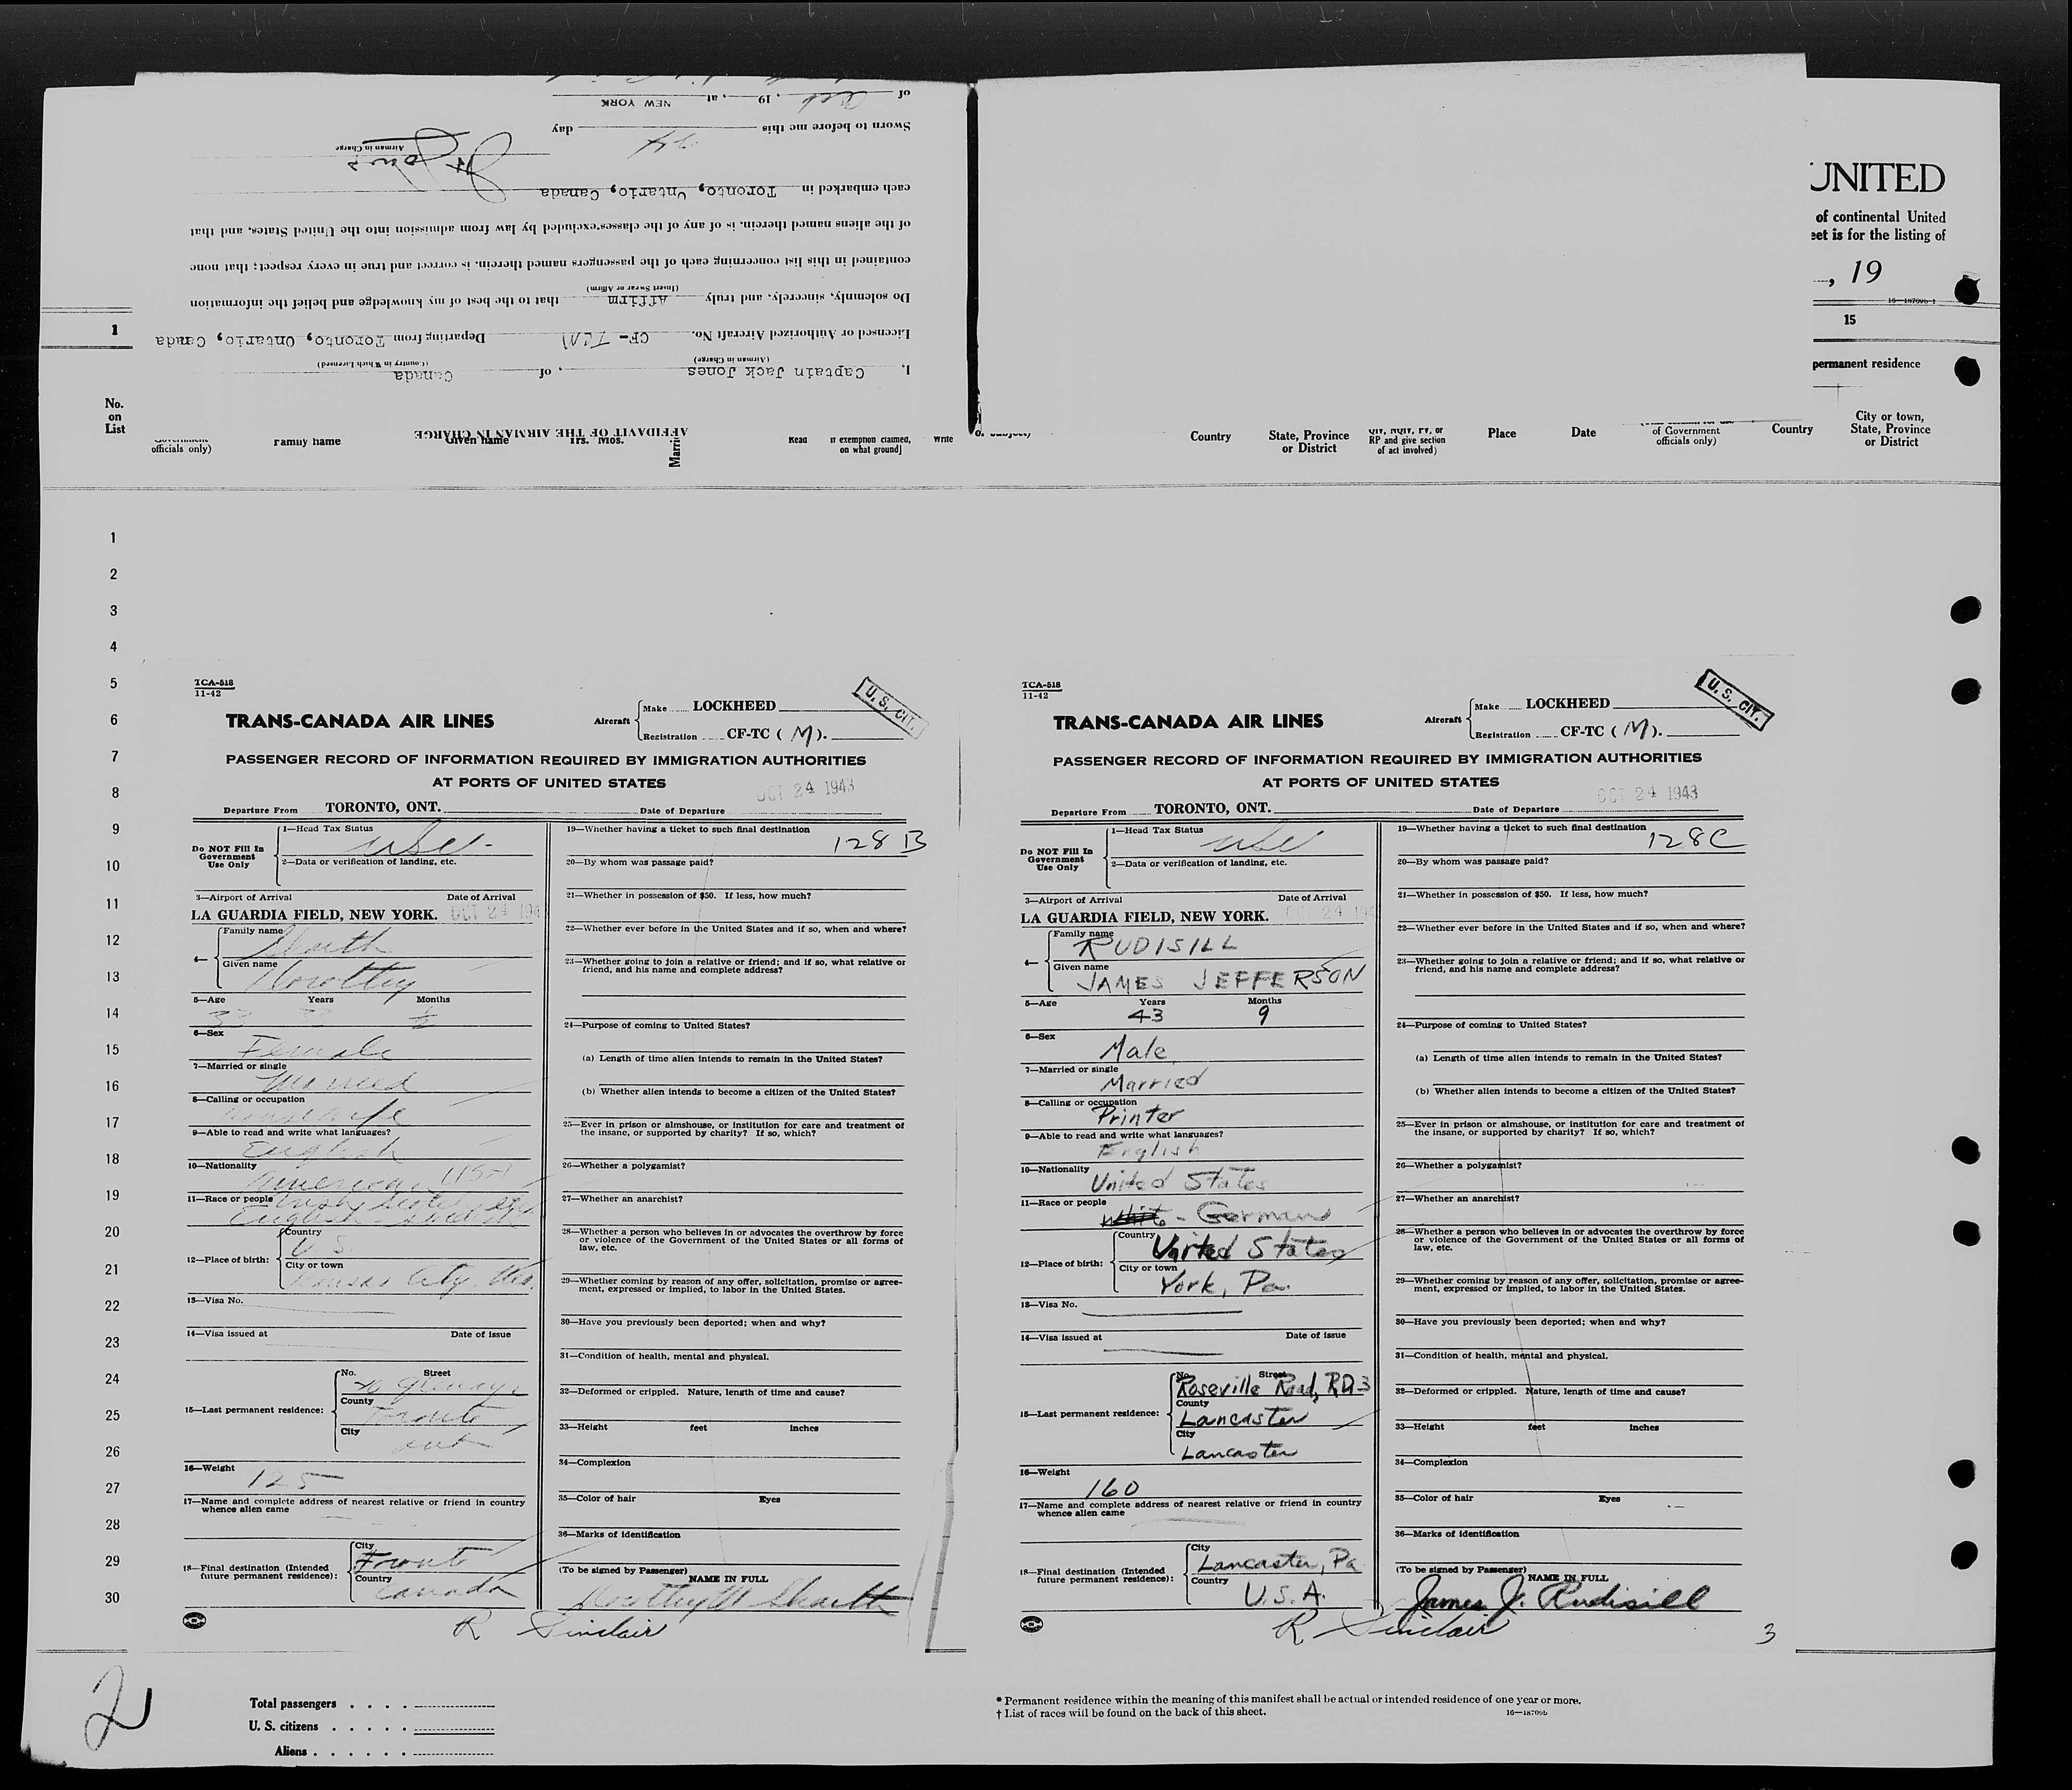 AFFIDAVIT OF THE AIRMAN IN CHARGE
I, Captain Jack Jones, of Canada
(Airman in Charge) (Country in Which Licensed)
Licensed or Authorized Aircraft No. CF- TCM Departing from Toronto, Ontario, Canada
Do solemnly, sincerely, and truly Affirm that to the best of my knowledge and belief the information
(Insert Swear or Affirm)
contained in this list concerning each of the passengers named therein, is correct and true in every respect; that none
of the aliens named therein, is of any of the classes excluded by law from admission into the United States, and that
each embarked in Toronto, Ontario, Canada
Airman in Charge
Sworn to before me this 24 day
of Oct, 19 , at NEW YORK
UNITED
of continental United
eet is for the listing of
, 19
16—18709b-1
1
15
permanent residence
No.
on
List
Government
officials only)
Family name
Given name
Yrs. Mos.
Marri
Read
if exemption claimed,
on what ground]
Write
Country
State, Province
or District
QIV, NQIV, PV, or
RP and give section
of act involved)
Place
Date
of Government
officials only)
Country
City or town,
State, Province
or District
1
2
3
4
5
6
7
8
9
10
11
12
13
14
15
16
17
18
19
20
21
22
23
24
25
26
27
28
29
30
TCA-518
11-42
U. S. CIT.
TRANS-CANADA AIR LINES
Aircraft
Make LOCKHEED
Registration CF-TC ( M ).
PASSENGER RECORD OF INFORMATION REQUIRED BY IMMIGRATION AUTHORITIES
AT PORTS OF UNITED STATES
OCT 24 1943
Departure From TORONTO, ONT. Date of Departure
Do NOT Fill In
Government
Use Only
1—Head Tax Status
USC
2—Data or verification of landing, etc.
3—Airport of Arrival Date of Arrival
LA GUARDIA FIELD, NEW YORK. OCT 24 194
4—
Family name
Given name Dorothy
5—Age Years Months
33
6—Sex
Female
7—Married or single
Married
8—Calling or occupation
Housewife
9—Able to read and write what languages?
English
10—Nationality
American USA
11—Race or people
Irish, Scotch,
English
12—Place of birth:
Country
U S.
City or town
Kansas City, Mo.
13—Visa No.
14—Visa issued at Date of issue
15—Last permanent residence:
No. Street
County
Toronto
City
Ont
16—Weight
125
17—Name and complete address of nearest relative or friend in country
whence alien came
18—Final destination (Intended
future permanent residence):
City
Toronto
Country
Canada
19—Whether having a ticket to such final destination
128 B
20—By whom was passage paid?
21—Whether in possession of $50. If less, how much?
22—Whether ever before in the United States and if so, when and where?
23—Whether going to join a relative or friend; and if so, what relative or
friend, and his name and complete address?
24—Purpose of coming to United States?
(a) Length of time alien intends to remain in the United States?
(b) Whether alien intends to become a citizen of the United States?
25—Ever in prison or almshouse, or institution for care and treatment of
the insane, or supported by charity? If so, which?
26—Whether a polygamist?
27—Whether an anarchist?
28—Whether a person who believes in or advocates the overthrow by force
or violence of the Government of the United States or all forms of
law, etc.
29—Whether coming by reason of any offer, solicitation, promise or agree-
ment, expressed or implied, to labor in the United States.
30—Have you previously been deported; when and why?
31—Condition of health, mental and physical.
32—Deformed or crippled. Nature, length of time and cause?
33—Height feet inches
34—Complexion
35—Color of hair Eyes
36—Marks of identification
(To be signed by Passenger)
NAME IN FULL
Dorothy M
R Sinclair
TCA-518
11-42
U. S. CIT.
TRANS-CANADA AIR LINES
Aircraft
Make LOCKHEED
Registration CF-TC ( M ).
PASSENGER RECORD OF INFORMATION REQUIRED BY IMMIGRATION AUTHORITIES
AT PORTS OF UNITED STATES
OCT 24 1943
Departure From TORONTO, ONT. Date of Departure
Do NOT Fill In
Government
Use Only
1—Head Tax Status
USC
2—Data or verification of landing, etc.
3—Airport of Arrival Date of Arrival
LA GUARDIA FIELD, NEW YORK. OCT 24 194
4—
Family name
RUDISILL
Given name
JAMES JEFFERSON
5—Age Years Months
43 9
6—Sex
Male
7—Married or single
Married
8—Calling or occupation
Printer
9—Able to read and write what languages?
English
10—Nationality
United States
11—Race or people
White - German
12—Place of birth:
Country
United States
City or town
York, Pa.
13—Visa No.
14—Visa issued at Date of issue
15—Last permanent residence:
No. Street
Roseville Road, RD 3
County
Lancaster
City
Lancaster
16—Weight
160
17—Name and complete address of nearest relative or friend in country
whence alien came
18—Final destination (Intended
future permanent residence):
City
Lancaster, Pa
Country
U.S.A.
19—Whether having a ticket to such final destination
128C
20—By whom was passage paid?
21—Whether in possession of $50. If less, how much?
22—Whether ever before in the United States and if so, when and where?
23—Whether going to join a relative or friend; and if so, what relative or
friend, and his name and complete address?
24—Purpose of coming to United States?
(a) Length of time alien intends to remain in the United States?
(b) Whether alien intends to become a citizen of the United States?
25—Ever in prison or almshouse, or institution for care and treatment of
the insane, or supported by charity? If so, which?
26—Whether a polygamist?
27—Whether an anarchist?
28—Whether a person who believes in or advocates the overthrow by force
or violence of the Government of the United States or all forms of
law, etc.
29—Whether coming by reason of any offer, solicitation, promise or agree-
ment, expressed or implied, to labor in the United States.
30—Have you previously been deported; when and why?
31—Condition of health, mental and physical.
32—Deformed or crippled. Nature, length of time and cause?
33—Height feet inches
34—Complexion
35—Color of hair Eyes
36—Marks of identification
(To be signed by Passenger)
NAME IN FULL
James J. Rudisill
R Sinclair
3
2
Total passengers . . . .
U. S. citizens . . . . .
Aliens . . . . . .
* Permanent residence within the meaning of this manifest shall be actual or intended residence of one year or more.
† List of races will be found on the back of this sheet.
16—18709b